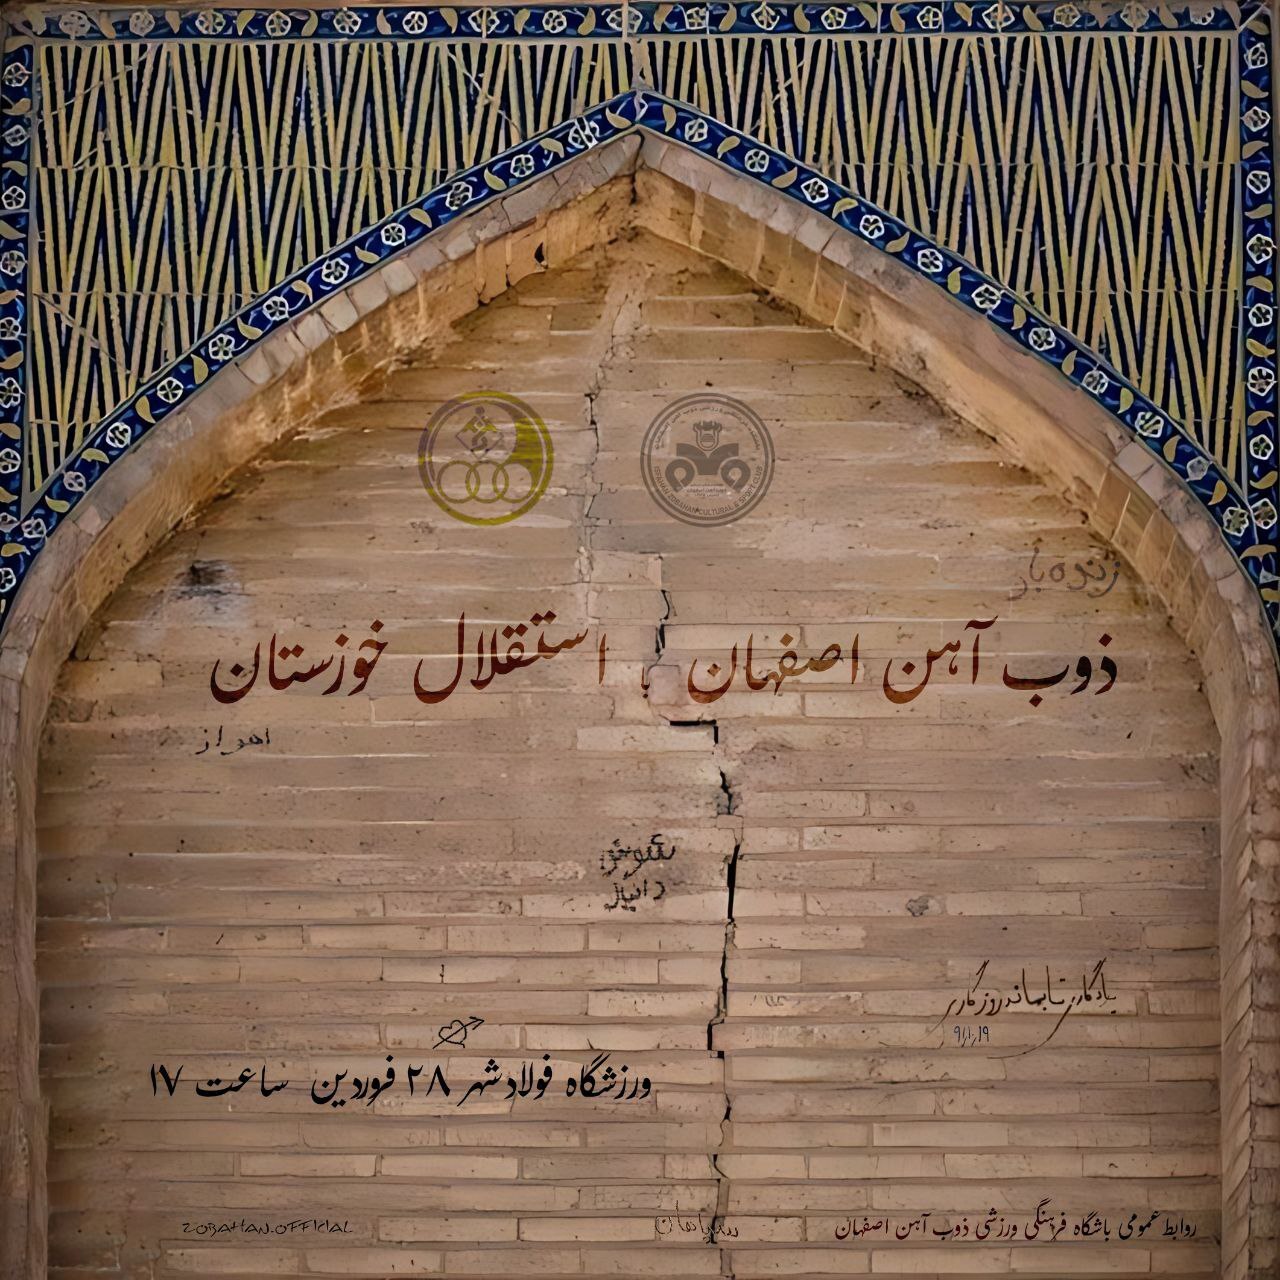 ISFAHAN ZOBAHAN CULTURAL & SPORT CLUB
زنده باد
ذوب آهن اصفهان با استقلال خوزستان
اهواز
شوش
دانیال
یادگاری تا بماند روزگاری
۹۱،۱،۱۹
ورزشگاه فولادشهر ۲۸ فروردین ساعت ۱۷
روابط عمومی باشگاه فرهنگی ورزشی ذوب آهن اصفهان
سپاهان
ZOBAHAN.OFFICIAL